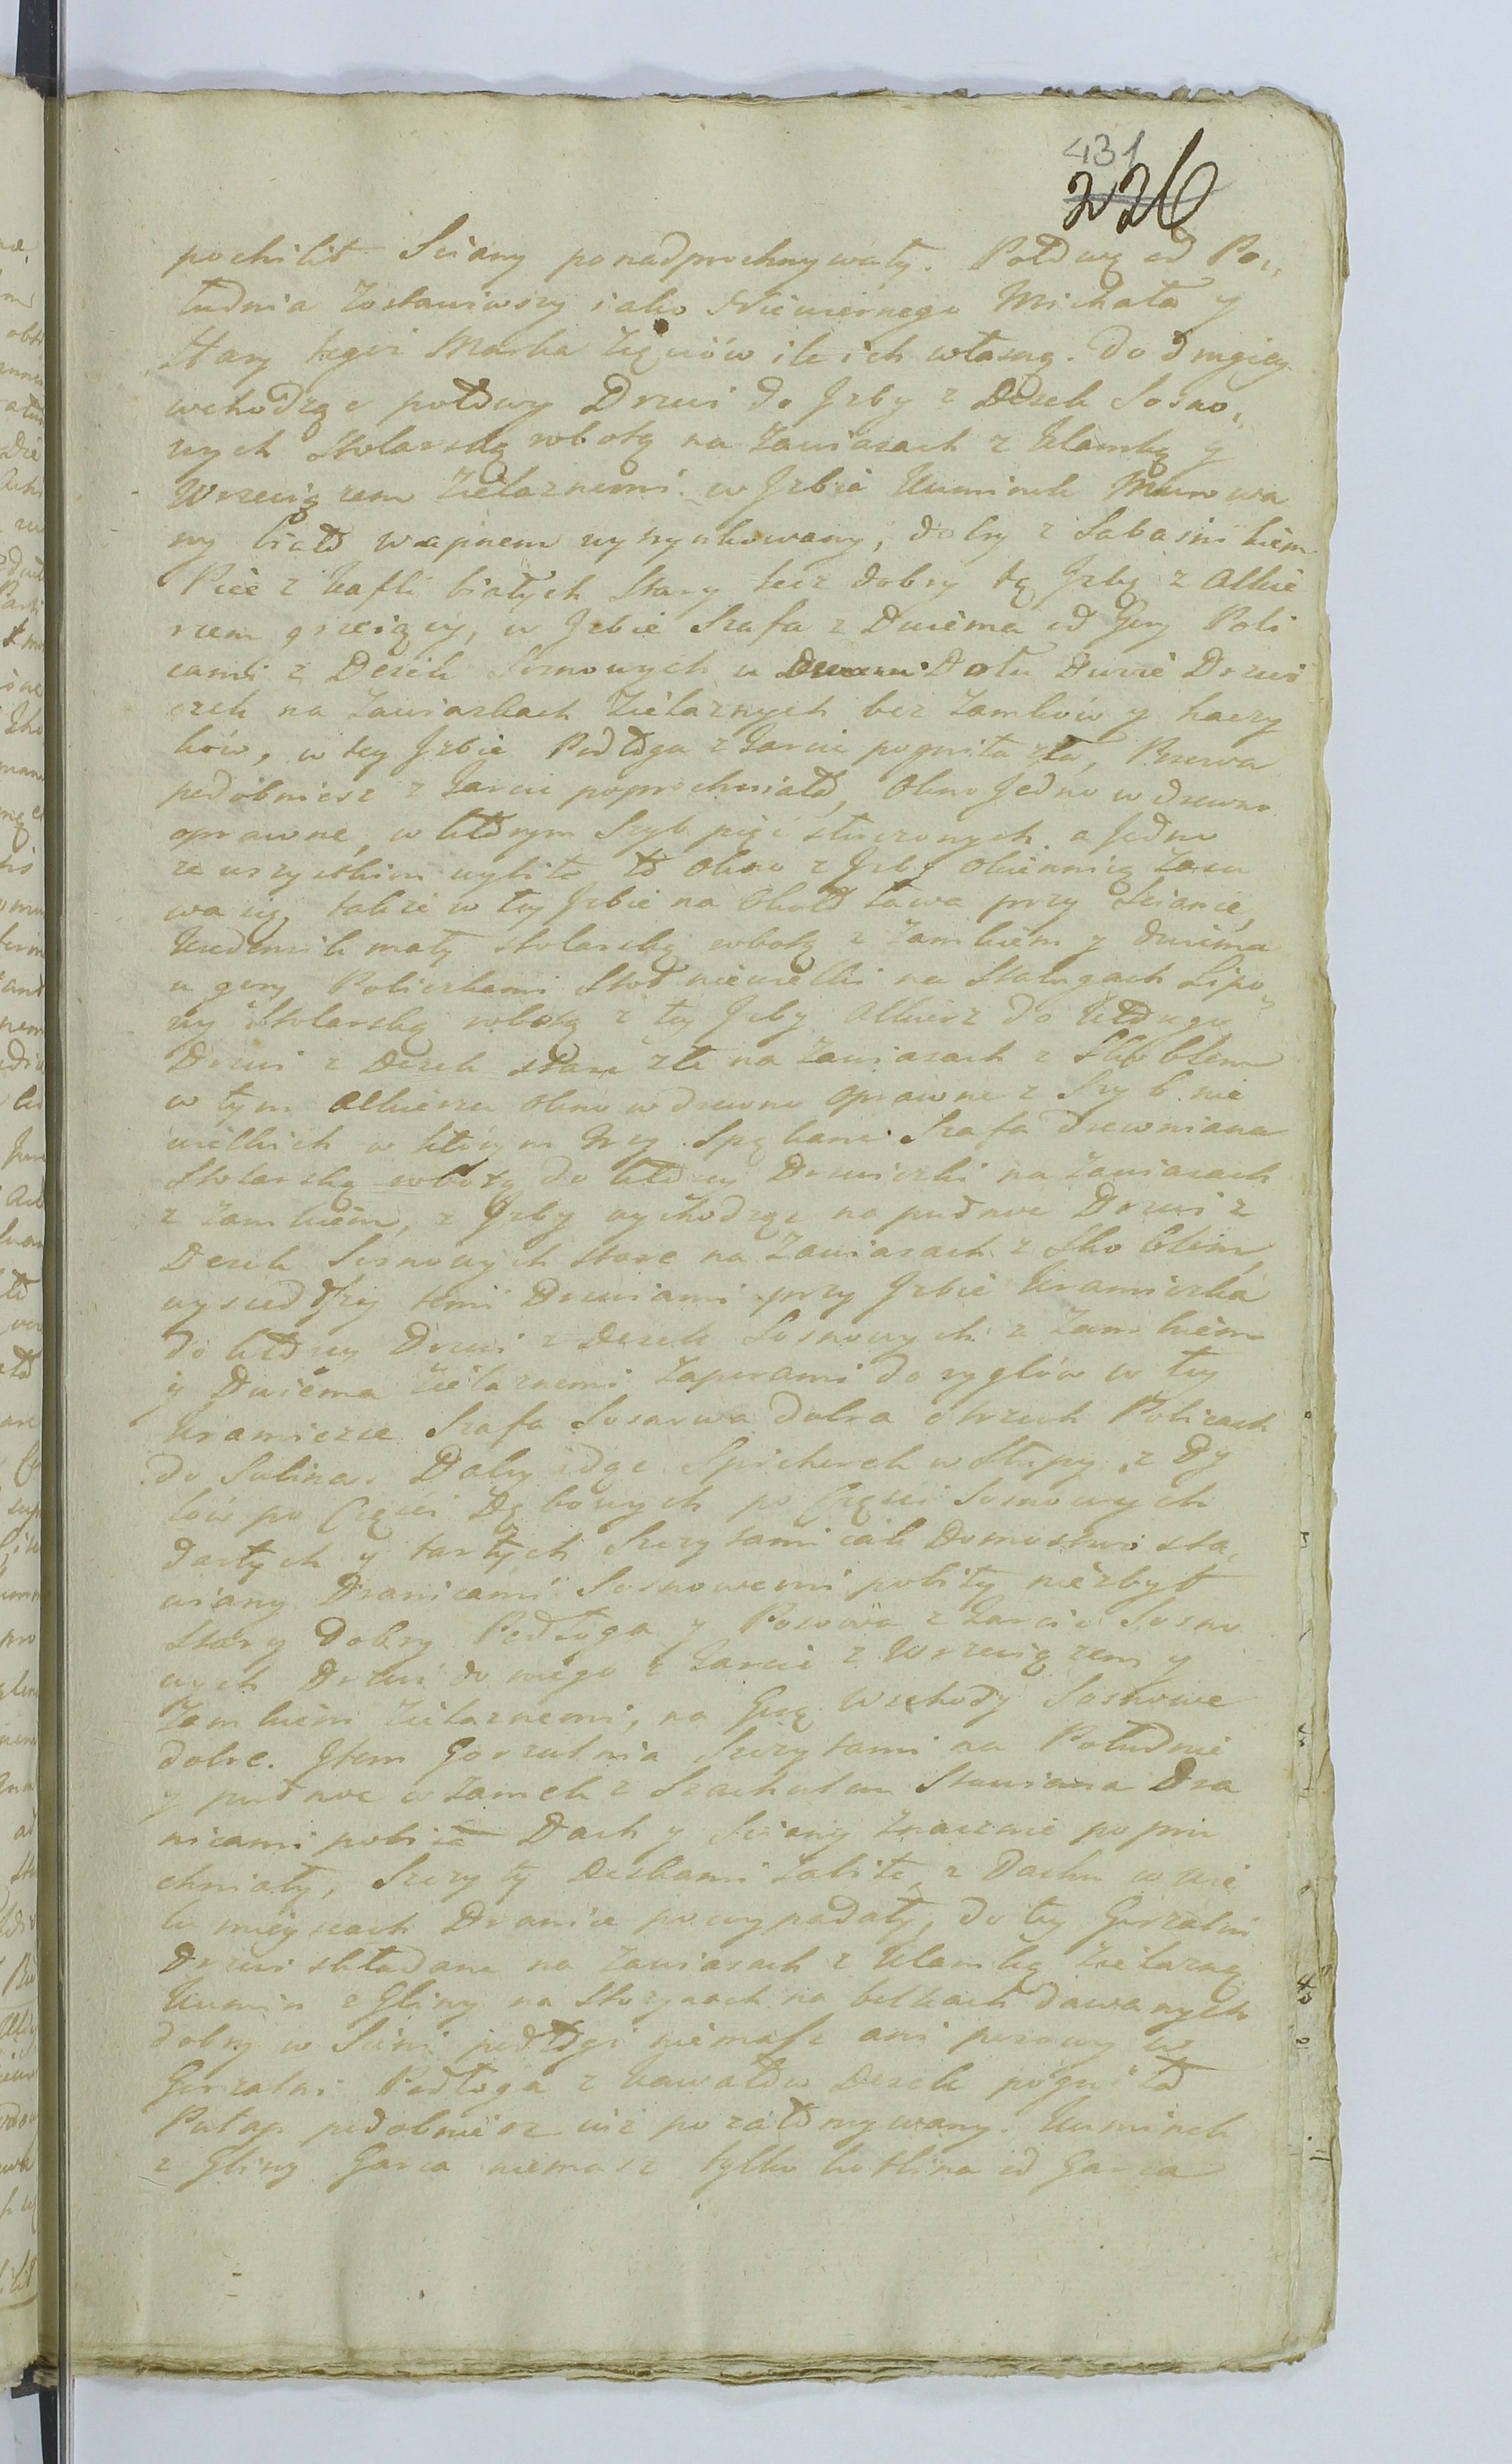 431
226
pochilił Sciany ponadprochnywały. Połowę od Po„
łudnia zostawiwszy iako Niewiernego Michała y
Stary tegoż Marka Zięciów ile ich własną. Do drugiey
wchodząc połowy Drzwi do Jzby z Desek Sosno„
wych stolarską robotą na zawiasach z klamką y
Wrzeciązem Żelaznemi. w Jzbie Kominek Murowa
ny biało wapnem wyszynkowany, dobry z Sabaśnikiem
Piec z kafli białych stary lecz dobry tę Jzbę z Alkie
rzem grzeiący, w Jzbie Szafa z Dwiema od Gory Poli
cami z Desek Sosnowych u Dołu Dwie Drzwi
czek na zawiaskach Żelaznych bez zamków y haczy
ków, w tey Jzbie Podłoga z Tarcic pogniła zła, Pozowa
podobniesz z Tarcic poprochniała, Okno Jedno w drewno
oprawne, w którym Szyb pięć stłuczonych, a Jedno
ze wszystkim wybite to okno z Jzby okiennicą zasu
wa się, także w tey Jzbie na około Ława przy Scianie,
Kredensik mały stolarską robotą z zamkiem y dwiema
u gory Policzkami Stoł niewielki na Stalugach Lipo„
wy Stolarską robotą z tey Jzby Alkierz do którego
Drzwi z Desek stare złe na zawiasach z Skoblem
w tym Alkierzu okno w drewno oprawne z Szyb nie
wielkich w którym trzy Spękane Szafa drewniana
Stolarską robotą do którey Drzwiczki na zawiasach
z zamkiem, z Jzby wychodząc na pułnoc Drzwi z
Desek Sosnowych stare na Zawiasach z Skoblem,
wyszedłszy temi Drzwiami przy Jzbie Kramiczka
do którey Drzwi z Desek Sosnowych z zamkiem
y Dwiema Żelaznemi Zaporami do ryglów w tey
Kramiczce Szafa Sosnowa dobra o trzech Policach
do Daley idąc Spicherek w Słupy, z Dy
lów po Części Dębowych po Części Sosnowych
dartych y tartych Szczytami iak Domostwo sta„
wiany Dranicami Sosnowemi pobity niezbyt
Stary dobry Podłoga y Pozowa z Tarcic Sosno
wych Drzwi do niego z Tarcic z Wrzeciązem y
Zamkiem Żelaznemi, na Gorę Wschody Sosnowe
dobre. Jtem Gorzalnia Szczytami na Południe
y pułnoc w zamek z Szachulcu Stawiana Dra
nicami pobita Dach y Sciany znacznie popru
chniały, Szczyty Deskami zabite, z Dachu w wie
lu mieyscach Dranice powypadały, do tey Gorzalni
Drzwi składane na zawiasach z klamką Żelazną
Komin z Gliny na Stożynach na belkach dawanych
dobry w Sieni podłogi niemasz ani pozowy w
Gorzalni Podłoga z kawałów Desek pogniła
Pułap podobniesz iuż Kominek
z Gliny Garca niemasz tylko kotlina od Garca